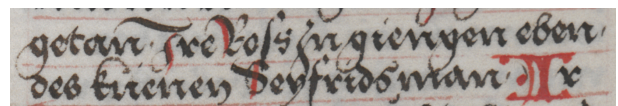 getan · Jre Ross In giengen eben ·
des kuenen Seyfrids man · Ir